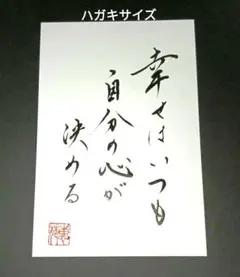 ハガキサイズ
幸せはいつも
自分の心が
決める